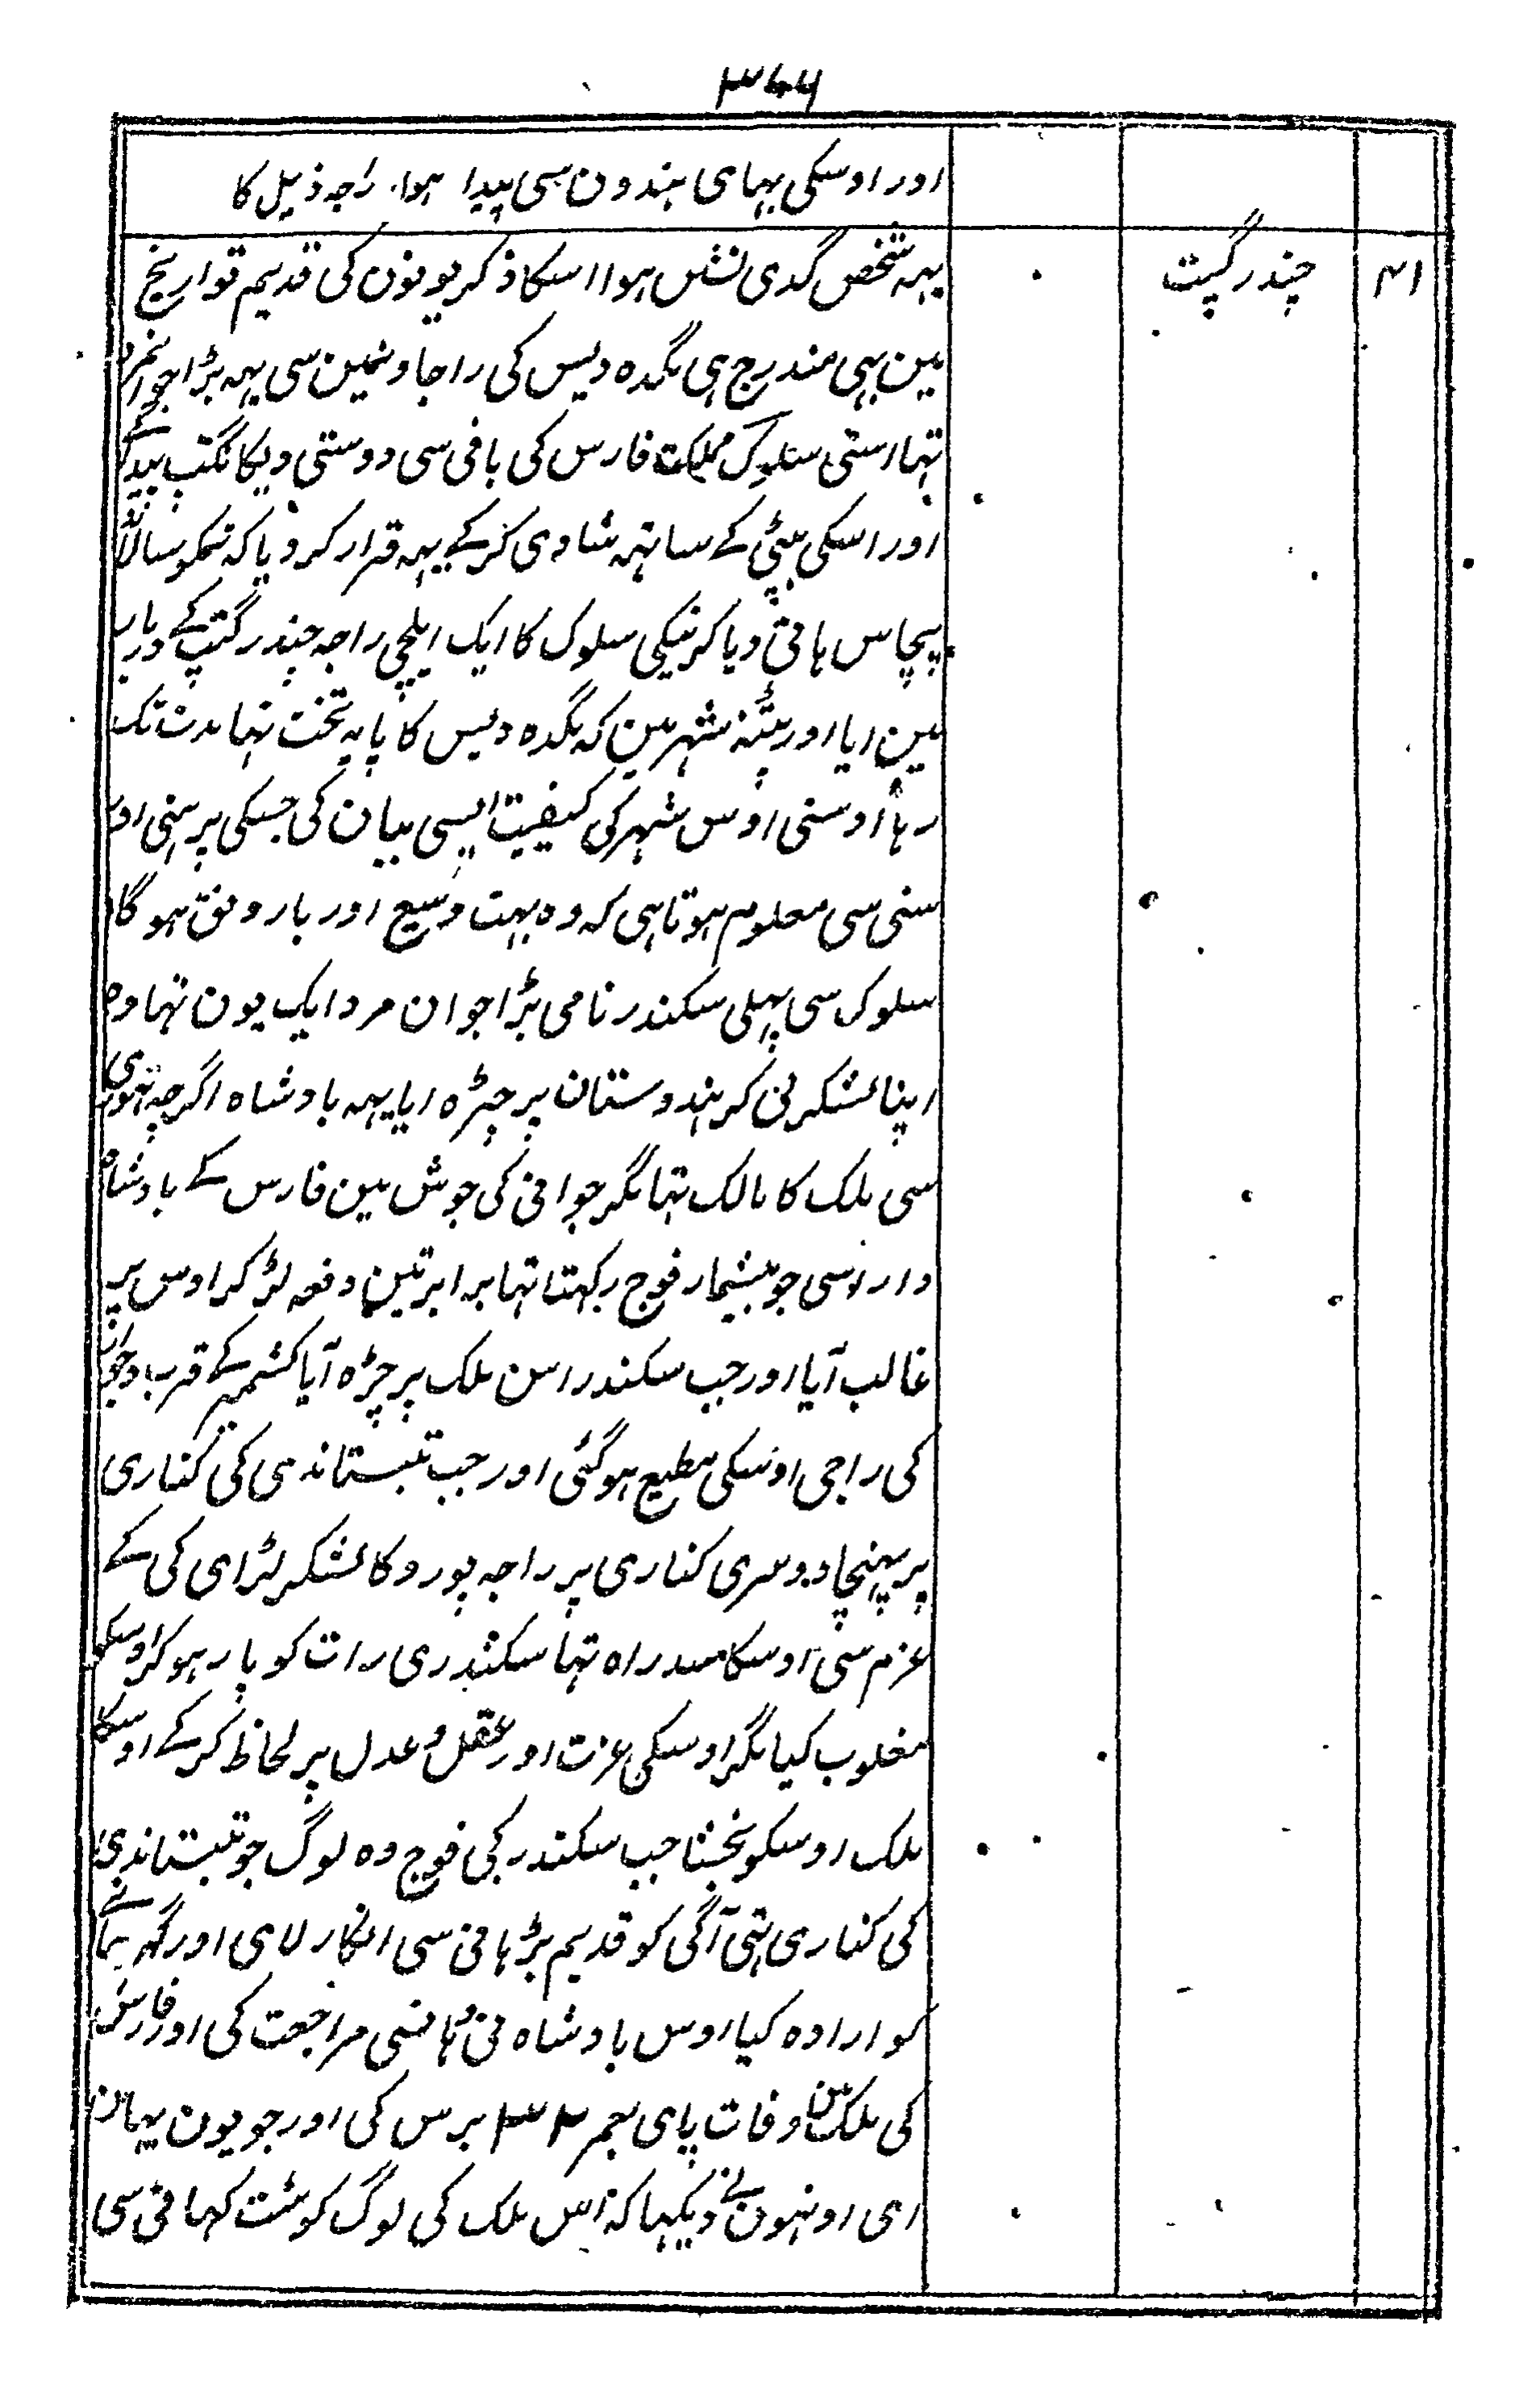 ۳۶۶
اور اوسکی بہای ہندون سی پیدا ہوا. راجہ ذیل کا
۴۱ چندرگپت یہہ شخص گدی نشین ہوا اسکا ذکر یونون کی قدیم تواریخ
مین بہی مندرج ہی مگدہ دیس کی راجاونمین سی یہہ بڑا جوانمرد
تہا اسنی سلوک مملکت فارس کی بانی سی دوستی ویکانگت پیدا کے
اور اسکی بیٹی کے ساتہہ شادی کر کے یہہ قرار کر دیا کہ تمکو سالانہ
پچاس ہاتی دیا کرنیگی سلوک کا ایک ایلچی راجہ چندر گپت کے دربار
مین ایا اور پٹنہ شہر مین کہ مگدہ دیس کا پایہ تخت تہا مدت تک
رہا اوسنی اوس شہر کی کیفیت ایسی بیان کی جسکی پرہنی اور
سنی سی معلوم ہوتا ہی کہ وہ بہت وسیع اور بارونق ہوگا
سلوک سی پہلی سکندر نامی بڑا جوان مرد ایک یون تہا وہ
اپنا لشکر لی کر ہندوستان پر چڑہ ایا یہہ بادشاہ اگرچہ تہوری
سی ملک کا مالک تہا مگر جوانی کی جوش مین فارس کے بادشاہ
دارا سی جو بیشمار فوج رکہتا تہا برابر تین دفعہ لڑ کر اوس پر
غالب آیا اور جب سکندر اس ملک پر چڑہ آیا کشمیر کے قرب وجوار
کی راجی اوسکی مطیع ہوگئی اور جب تبستا ندی کی کناری
پر پہنچا دوسری کناری پر راجہ پورو کا لشکر لڑای کی کے
عزم سی اوسکا سدراہ تہا سکندری رات کو پار ہو کر اوسکو
مغلوب کیا مگر اوسکی عزت اور عقل و عدل پر لحاظ کر کے اوسکا
ملک اوسکو بخشا جب سکندر کی فوج وہ لوگ جو تبستا ندی
کی کناری تہی آگی کو قدیم بڑہانی سی انکار لای اور گہر جانے
کو ارادہ کیا اوس بادشاہ نی وہانسی مراجعت کی اور فارس
کی ملک مین وفات پای بعمر ۳۲ برس کی اور جو یون یہان
ای اونہون نے دیکہا کہ اس ملک کی لوگ کوشت کہانی سی